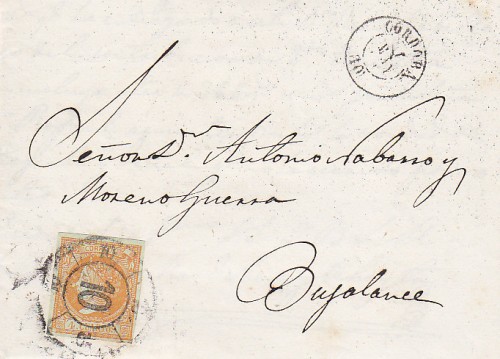 CORDOBA
10
Señor Dn. Antonio Nabarro y
Moreno Guerra
Bujalance
10